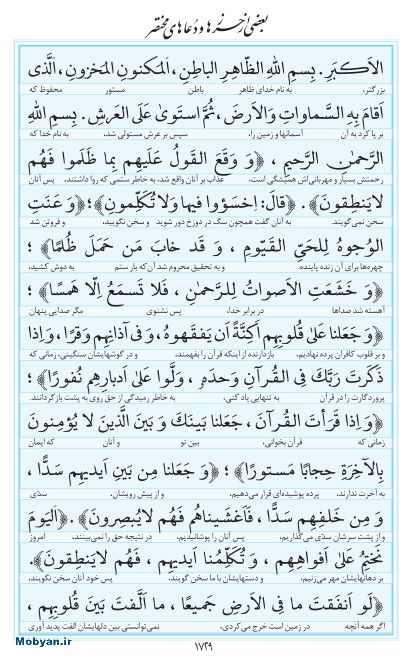 بعضی از حرزها و دعاهای مختصر
الاَکبَرِ . بِسمِ اللهِ الظّاهِرِ الباطِنِ ، اَلمَکنونِ المَخزونِ ، اَلَّذی
بزرگتر، به نام خدای ظاهر باطن مستور محفوظ که
اَقامَ بِهِ السَّماواتِ وَالاَرضَ ، ثُمَّ استَویٰ عَلَی العَرشِ . بِسمِ اللهِ
بر پا کرد به آن آسمانها و زمین را، سپس بر عرش مستولی شد، به نام خدا که
الرَّحمٰنِ الرَّحیمِ ، ﴿وَ وَقَعَ القَولُ عَلَیهِم بِما ظَلَموا فَهُم
رحمتش بسیار و مهربانی‌اش همیشگی است، عذاب بر آنان واقع شد، به خاطر ستمی که روا داشتند، پس آنان
لایَنطِقونَ﴾ . ﴿قالَ: اخسَؤُوا فیها وَلا تُکَلِّمونِ﴾؛ ﴿وَ عَنَتِ
سخن نمی‌گویند. به آنان گفت همچون سگ در دوزخ دور شوید و سخن نگویید، و فروتن شد
الوُجوهُ لِلحَیِّ القَیّومِ ، وَ قَد خابَ مَن حَمَلَ ظُلمًا﴾ ؛
چهره‌ها برای آن زنده پاینده. و به تحقیق محروم شد آن که بار ستم به دوش کشید،
﴿وَ خَشَعَتِ الاَصواتُ لِلرَّحمٰنِ ، فَلا تَسمَعُ اِلّا هَمسًا﴾ ؛
آهسته شد صداها در برابر خدا، پس نشنوی مگر صدایی پنهان
﴿وَ جَعَلنا عَلیٰ قُلوبِهِم اَکِنَّةً اَن یَفقَهوهُ ، وَ فی آذانِهِم وَقرًا ، وَاِذا
و بر قلوب کافران پرده نهادیم، بازدارنده از اینکه قرآن را بفهمند، و در گوشهایشان سنگینی، زمانی که
ذَکَرتَ رَبَّکَ فِی القُرآنِ وَحدَهٗ ، وَلَّوا عَلیٰ اَدبارِهِم نُفورًا﴾ ؛
پروردگارت را در قرآن به تنهایی یاد کنی، به خاطر رمیدگی از حق روی به پشت بازگردانند.
﴿وَ اِذا قَرَأتَ القُرآنَ ، جَعَلنا بَینَکَ وَ بَینَ الَّذینَ لا یُؤمِنونَ
زمانی که قرآن بخوانی، بین تو و آنان که ایمان
بِالآخِرَةِ حِجابًا مَستورًا﴾ ؛ ﴿وَ جَعَلنا مِن بَینِ اَیدیهِم سَدًّا ،
به آخرت ندارند، پرده پوشیده‌ای قرار می‌دهیم، و از پیش رویشان، سدّی
وَ مِن خَلفِهِم سَدًّا ، فَاَغشَیناهُم فَهُم لایُبصِرونَ﴾ . ﴿اَلیَومَ
و از پشت سرشان سدّی می‌گذاریم، پس آنان را پوشانیدیم، در نتیجه حق را نمی‌بینند، امروز
نَختِمُ عَلیٰ اَفواهِهِم ، وَ تُکَلِّمُنا اَیدیهِم ، فَهُم لایَنطِقونَ﴾.
بر دهانهایشان مهر می‌زنیم، و دستهایشان با ما سخن گویند، پس خود آنان سخن نگویند،
﴿لَو اَنفَقتَ ما فِی الاَرضِ جَمیعًا ، ما اَلَّفتَ بَینَ قُلوبِهِم ،
اگر همه آنچه در زمین است خرج می‌کردی، نمی‌توانستی بین دلهایشان الفت پدید آوری
۱۷۲۹
Mobyan.ir